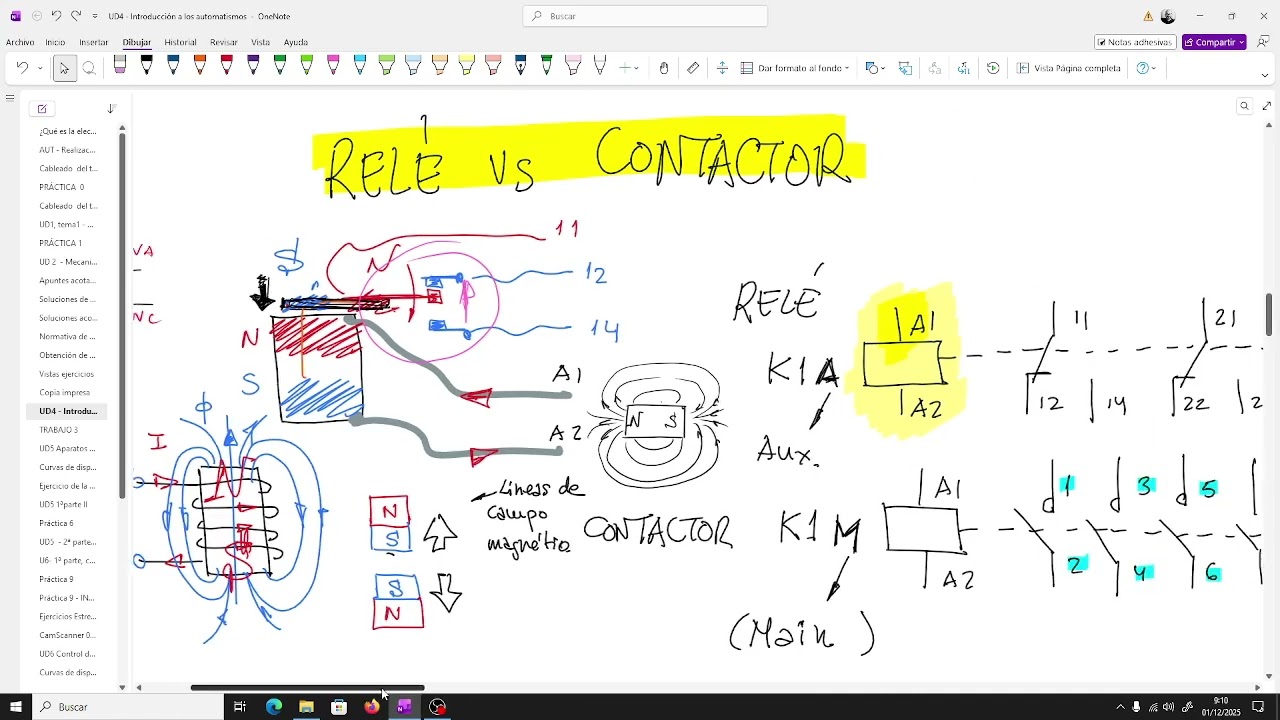 UD4 - Introducción a los automatismos - OneNote
Buscar
Archivo Inicio Insertar Dibujar Historial Revisar Vista Ayuda
Notas adhesivas
Compartir
Dar formato al fondo
Vista Página completa
¿Qué es la elec...
AUT - Realizac...
Cableado del t...
PRÁCTICA 0
Cableado del t...
UD1, tema1 - ...
PRÁCTICA 1
UD 2 - Mecani...
Apuntes acota...
Soluciones de ...
Soluciones acc...
Normativa de ...
Obtención de ...
Vistas ejercicios
Copia impresa
UD4 - Introdu...
TRABAJO 3
UD5 Aparatos ...
Curvas de disp...
Ejercicio de la ...
UD5 1ªparte II
Práctica 6
UD5 - 2ª parte...
U6- 1ª parte, c...
Práctica 9
Práctica 9 - IN...
Ejercicios Estre...
CamScanner 0...
UD6 Control d...
Curvas de disp...
RELÉ VS CONTACTOR
VA
NC
S
N
11
12
14
N
S
A1
A2
N S
Φ
I
N
N
S
S
N
Líneas de
campo
magnétio
RELÉ
K1A
Aux.
A1
A2
11
12 14
21
22 2
CONTACTOR
K1M
(Main)
A1
A2
1 3 5
2 4 6
Buscar
9:10
01/12/2025